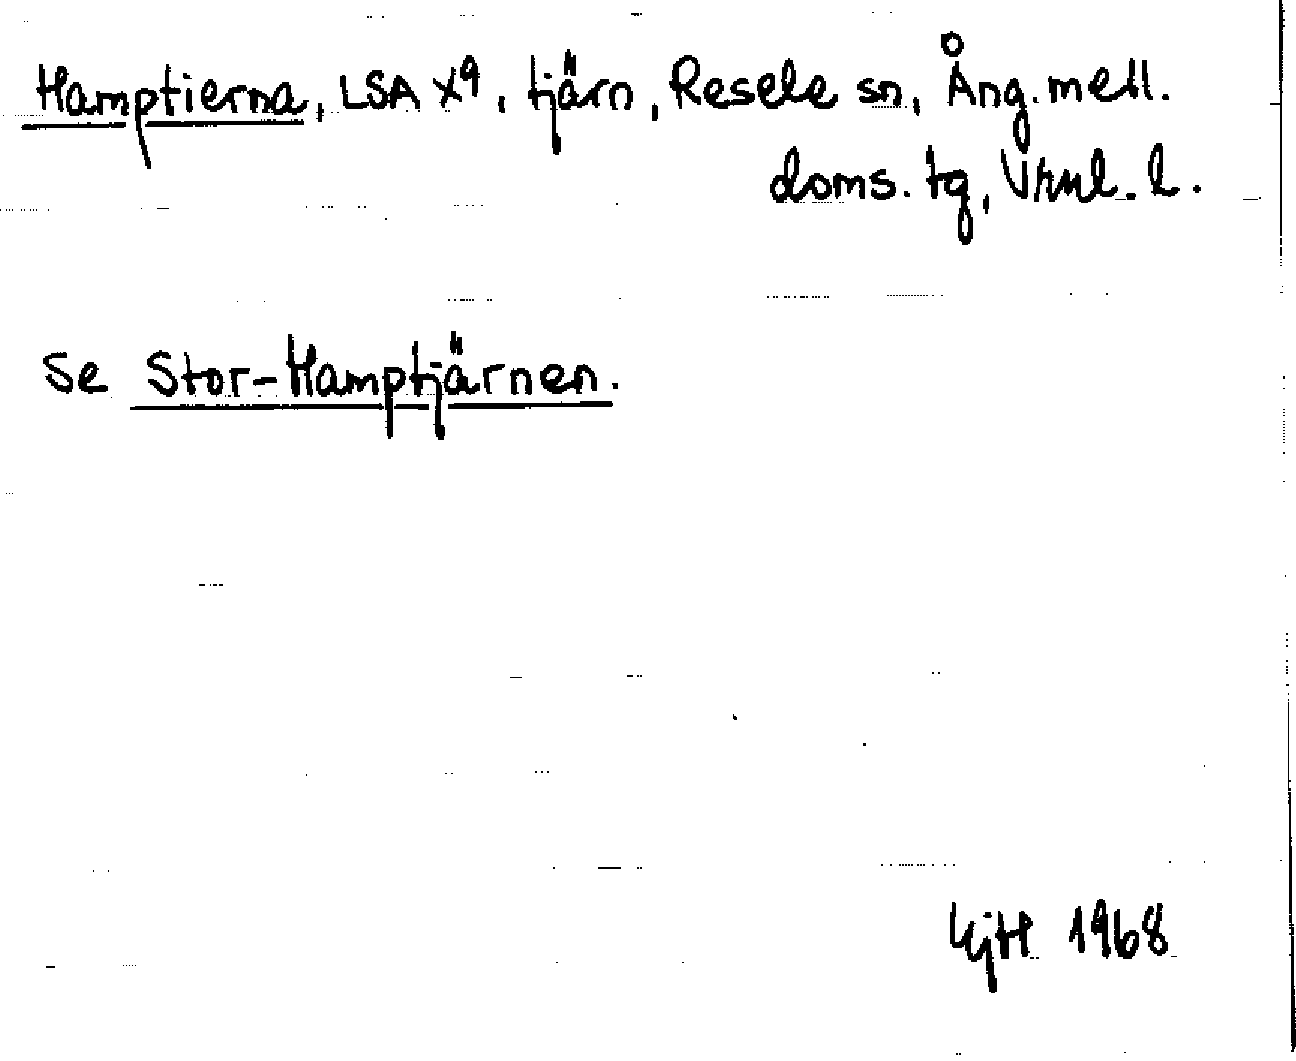 Hamptierna, LSA X9, tjärn, Resele sn, Ång. mell.
doms. tg, Vrnl. l.
Se Stor-Hamptjärnen.
1968